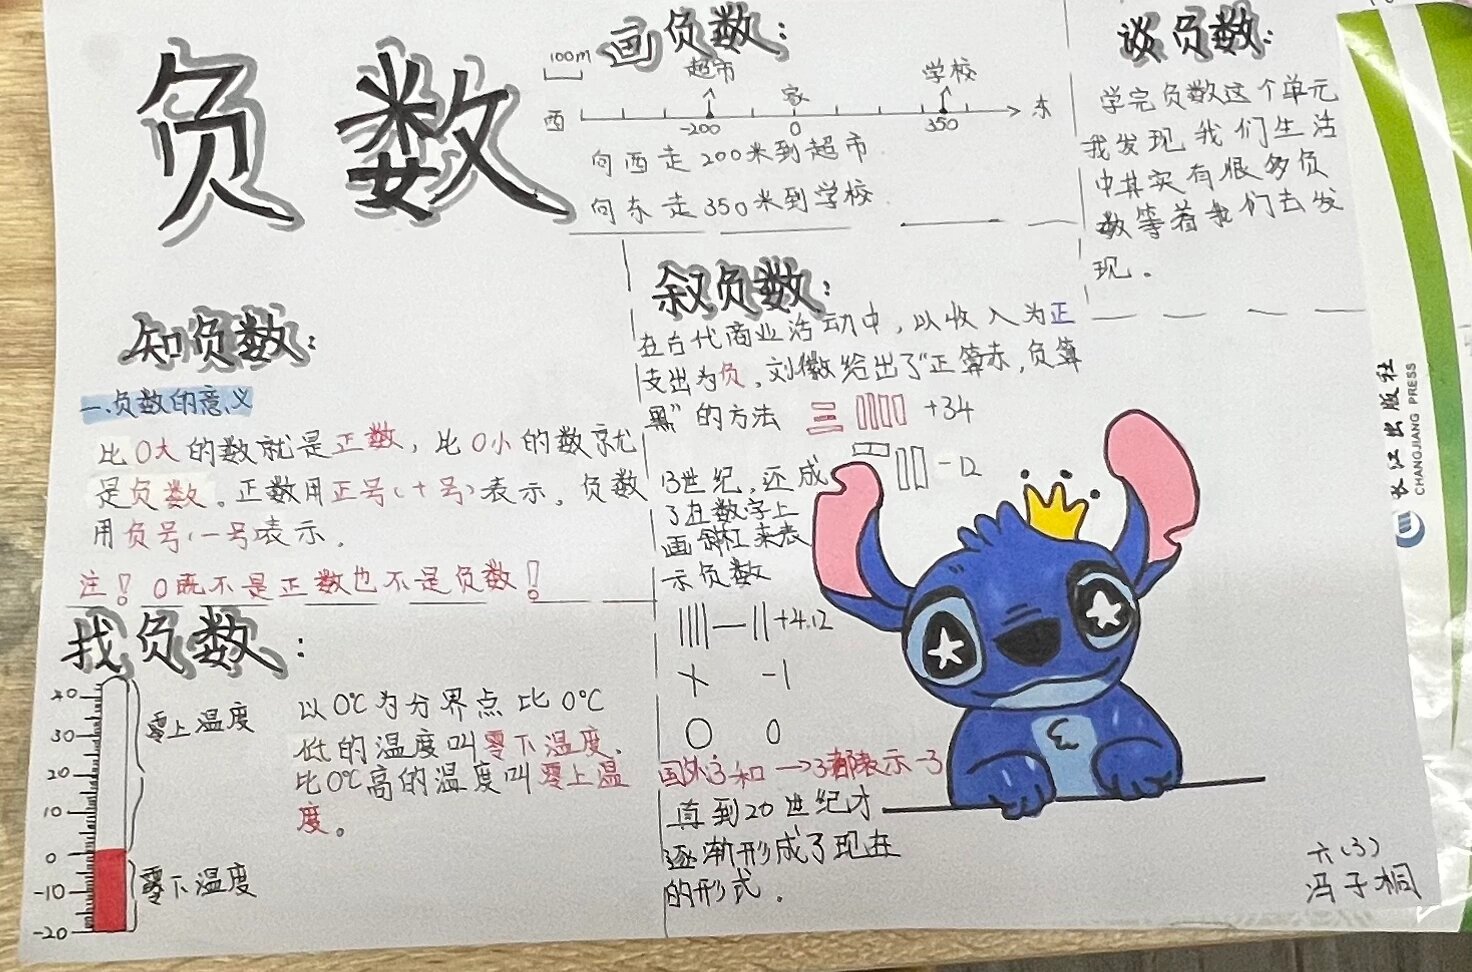 负数
画负数：
100m
超市
家
学校
西
东
-200
0
350
向西走200米到超市
向东走350米到学校
谈负数：
学完负数这个单元
我发现我们生活
中其实有很多负
数等着我们去发
现。
知负数：
一.负数的意义
比0大的数就是正数，比0小的数就
是负数。正数用正号(+号)表示。负数
用负号(-号)表示。
注！0既不是正数也不是负数！
找负数：
40
30
20
10
0
-10
-20
零上温度
零下温度
以0℃为分界点比0℃
低的温度叫零下温度.
比0℃高的温度叫零上温
度。
叙负数：
在古代商业活动中，以收入为正
支出为负。刘徽给出了"正算赤，负算
黑"的方法
+34
-12
13世纪，还成
了在数字上
画斜杠来表
示负数
+4.12
-1
0
0
国外
3都表示-3
直到20世纪才
逐渐形成了现在
的形式.
六(3)
冯子桐
长江出版社
CHANGJIANG PRESS